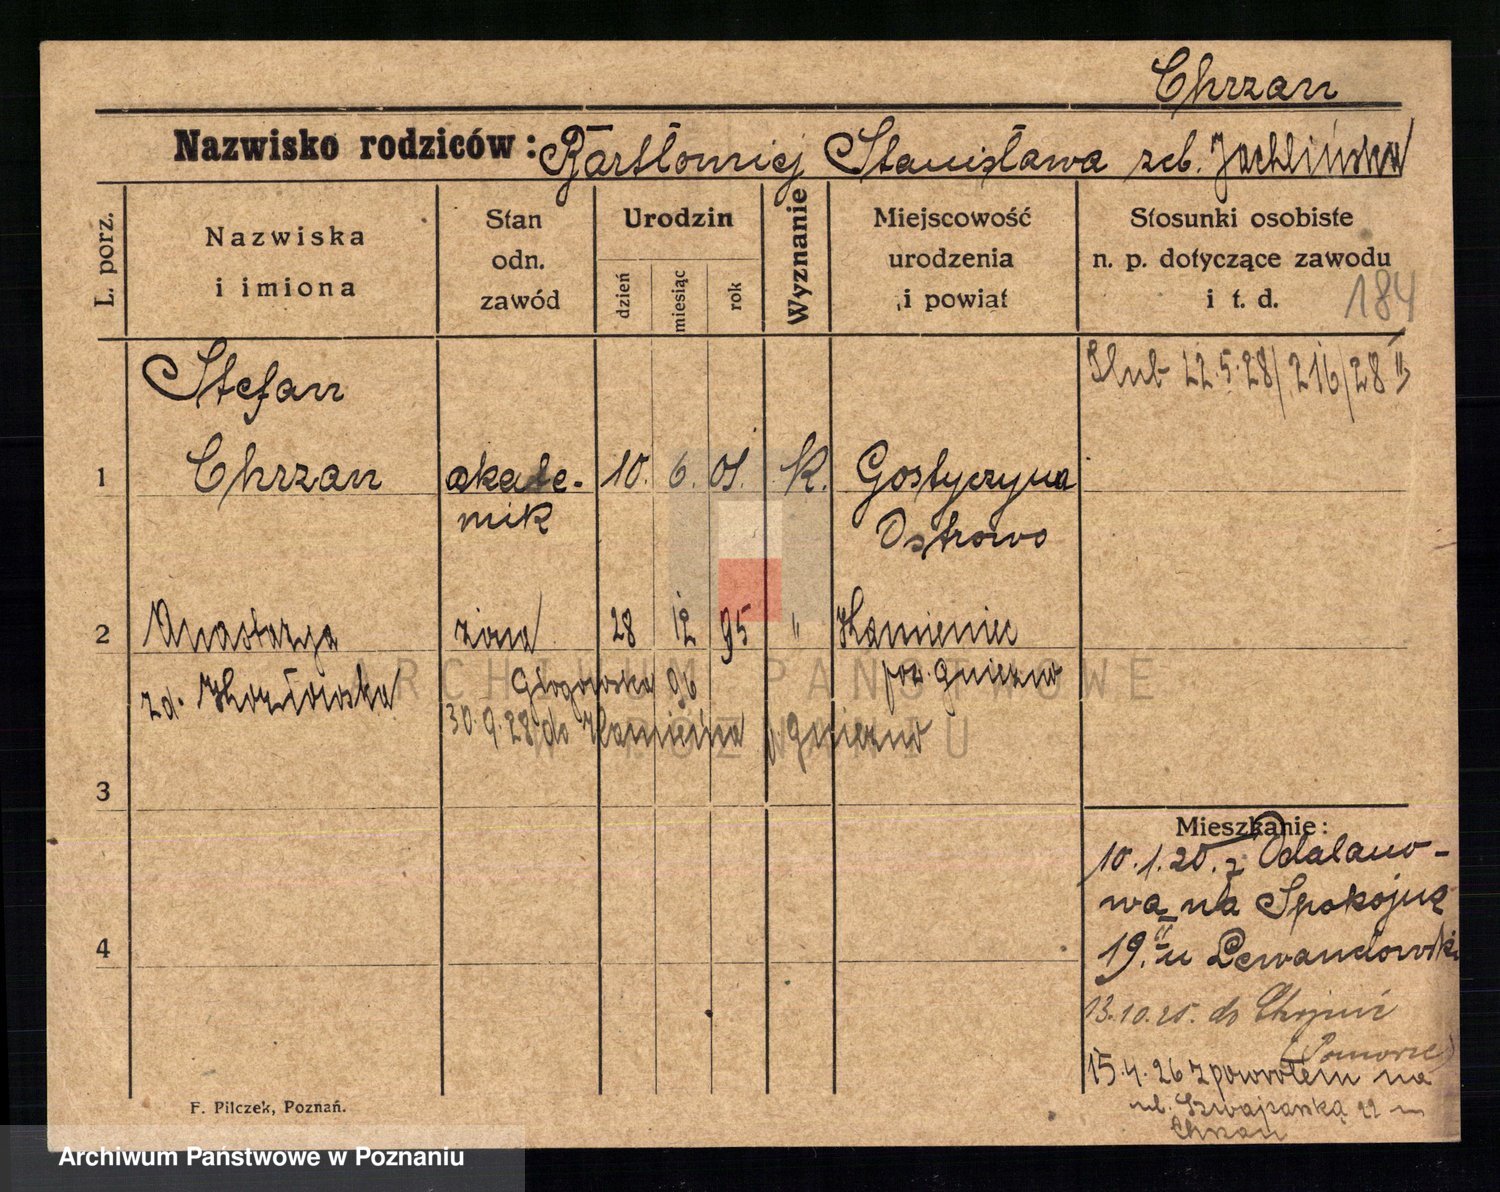 Chrzan
Nazwisko rodziców: Bartłomiej Stanisława zeb. Jachlińska
L. porz.
Nazwiska
i imiona
Stan
odn.
zawód
Urodzin
dzień
miesiąc
rok
Wyznanie
Miejscowość
urodzenia
i powiat
Stosunki osobiste
n. p. dotyczące zawodu
i t. d.
184
Ślub 22.5.28/216/28 II
Stefan
1 Chrzan akade- 10. 6. 01. K. Gostyczyna
mik Ostrowo
2 Anastazja żona 28 12 95 " Kamieniec
zd. Kozłowska Głogowska 96 pow. Gniezno
30.9.28 do Kamieńca p. Gniezno
ARCHIWUM PAŃSTWOWE
W POZNANIU
3
4
Mieszkanie:
10.1.20. z Odalano-
wa na Spokojną
19. II u Lewandowski
13.10.25. do
(Pomorze)
15.4.26 z powrotem na
ul. Szwajcarską 22
Chrzan
F. Pilczek, Poznań.
Archiwum Państwowe w Poznaniu